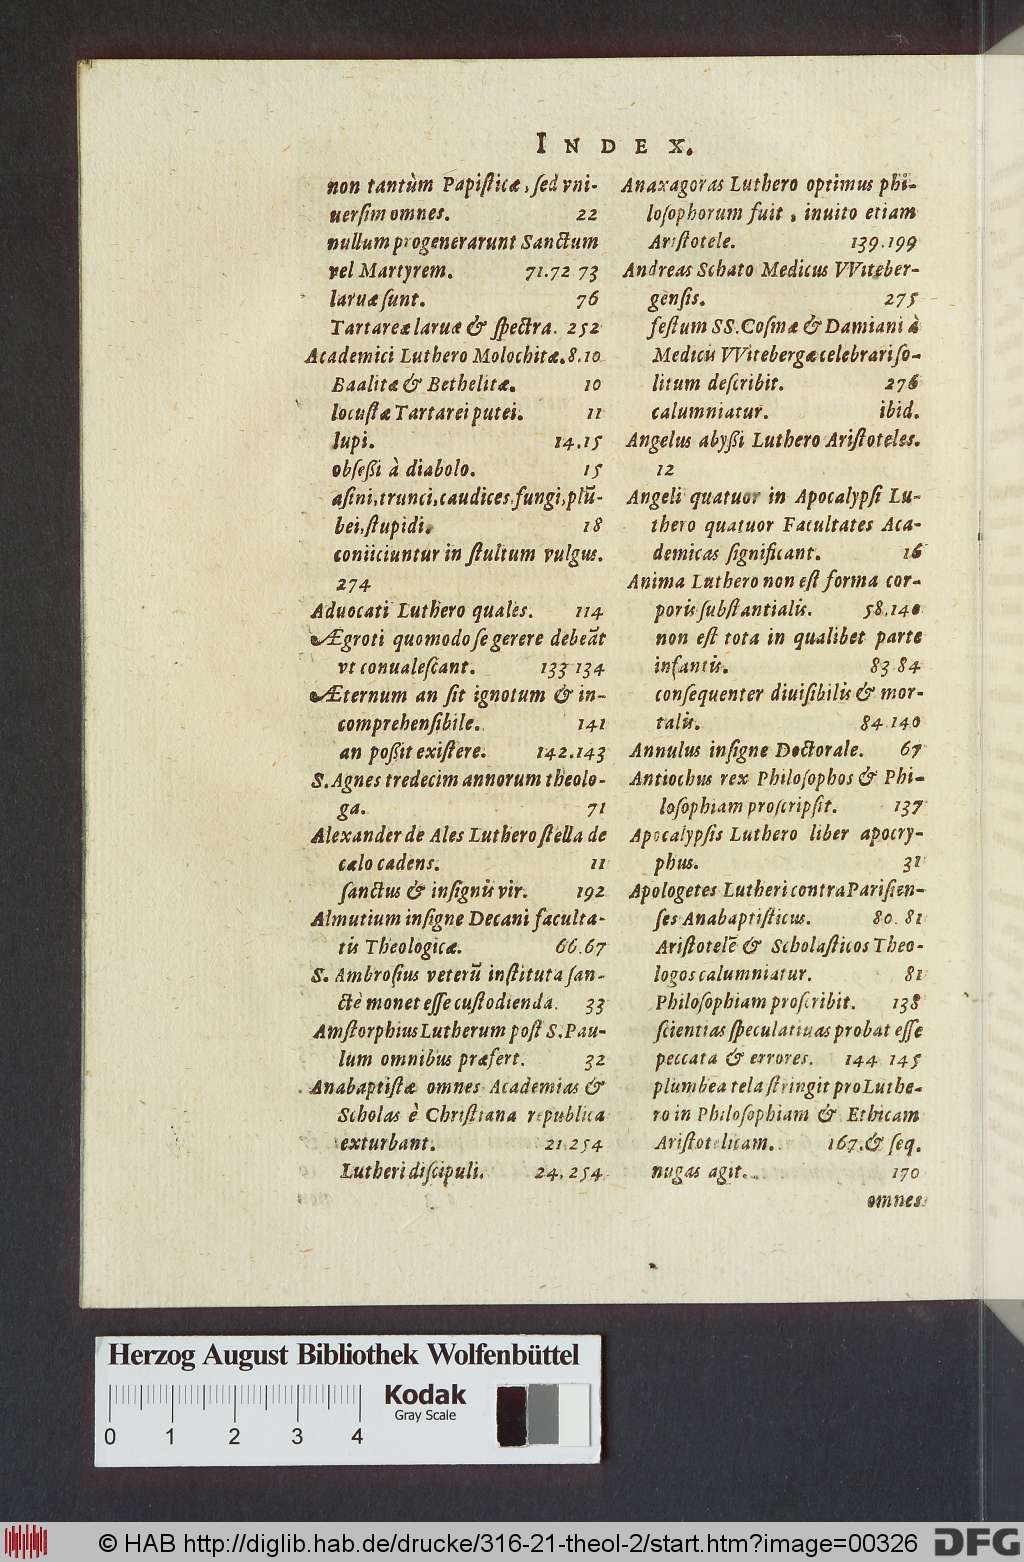 INDEX.
non tantùm Papiſticæ, ſed vni-
uerſim omnes. 22
nullum progenerarunt Sanctum
vel Martyrem. 71.72 73
laruæ ſunt. 76
Tartareæ laruæ & ſpectra. 252
Academici Luthero Molochitæ. 8.10
Baalitæ & Bethelitæ. 10
locuſtæ Tartarei putei. 11
lupi. 14.15
obſeßi à diabolo. 15
aſini, trunci, caudices, fungi, plū-
bei, ſtupidi. 18
coniiciuntur in ſtultum vulgus.
274
Aduocati Luthero quales. 114
Ægroti quomodo ſe gerere debeāt
vt conualeſcant. 133 134
Æternum an ſit ignotum & in-
comprehenſibile. 141
an poßit exiſtere. 142.143
S. Agnes tredecim annorum theolo-
ga. 71
Alexander de Ales Luthero ſtella de
cælo cadens. 11
ſanctus & inſignis vir. 192
Almutium inſigne Decani faculta-
tis Theologicæ. 66.67
S. Ambroſius veterū inſtituta ſan-
ctè monet eſſe cuſtodienda. 33
Amſtorphius Lutherum poſt S. Pau-
lum omnibus præfert. 32
Anabaptiſtæ omnes Academias &
Scholas è Chriſtiana republica
exturbant. 21.254
Lutheri diſcipuli. 24.254
Anaxagoras Luthero optimus phi-
loſophorum fuit, inuito etiam
Ariſtotele. 139.199
Andreas Schato Medicus VViteber-
genſis. 275
feſtum SS. Coſmæ & Damiani à
Medicis VVitebergæ celebrari ſo-
litum deſcribit. 276
calumniatur. ibid.
Angelus abyßi Luthero Ariſtoteles.
12
Angeli quatuor in Apocalypſi Lu-
thero quatuor Facultates Aca-
demicas ſignificant. 16
Anima Luthero non eſt forma cor-
poris ſubſtantialis. 58.140
non eſt tota in qualibet parte
infantis. 83 84
conſequenter diuiſibilis & mor-
talis. 84.140
Annulus inſigne Doctorale. 67
Antiochus rex Philoſophos & Phi-
loſophiam proſcripſit. 137
Apocalypſis Luthero liber apocry-
phus. 31
Apologetes Lutheri contra Pariſien-
ſes Anabaptiſticus. 80.81
Ariſtotelē & Scholaſticos Theo-
logos calumniatur. 81
Philoſophiam proſcribit. 138
ſcientias ſpeculatiuas probat eſſe
peccata & errores. 144 145
plumbea tela ſtringit pro Luthe-
ro in Philoſophiam & Ethicam
Ariſtotelicam. 167. & ſeq.
nugas agit. 170
omnes
Herzog August Bibliothek Wolfenbüttel
Kodak
Gray Scale
0 1 2 3 4
© HAB http://diglib.hab.de/drucke/316-21-theol-2/start.htm?image=00326
DFG